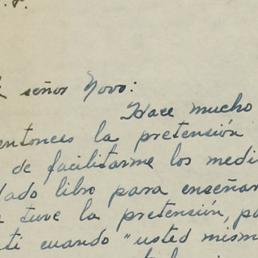 señor Novo:
Hace mucho
entonces la pretensión
de facilitarme los medi
dado libro para enseñar
tuve la pretensión, po
ti cuando "usted mism